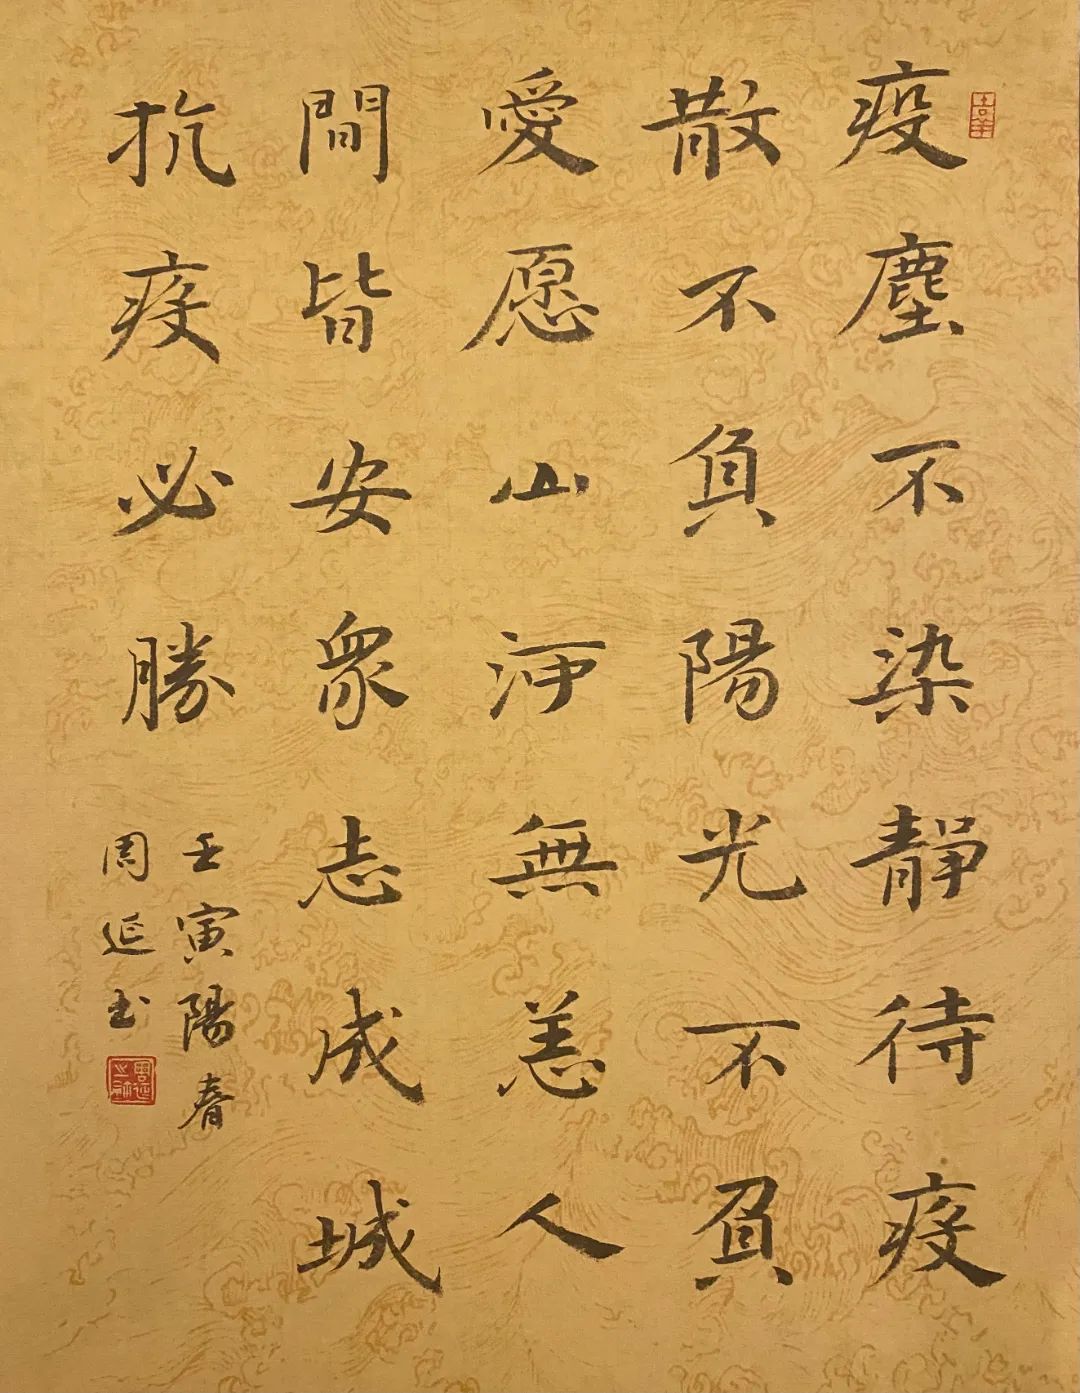 疫塵不染靜待疫
散不負陽光不負
愛愿山河無恙人
間皆安眾志成城
抗疫必勝
壬寅陽春
周延书